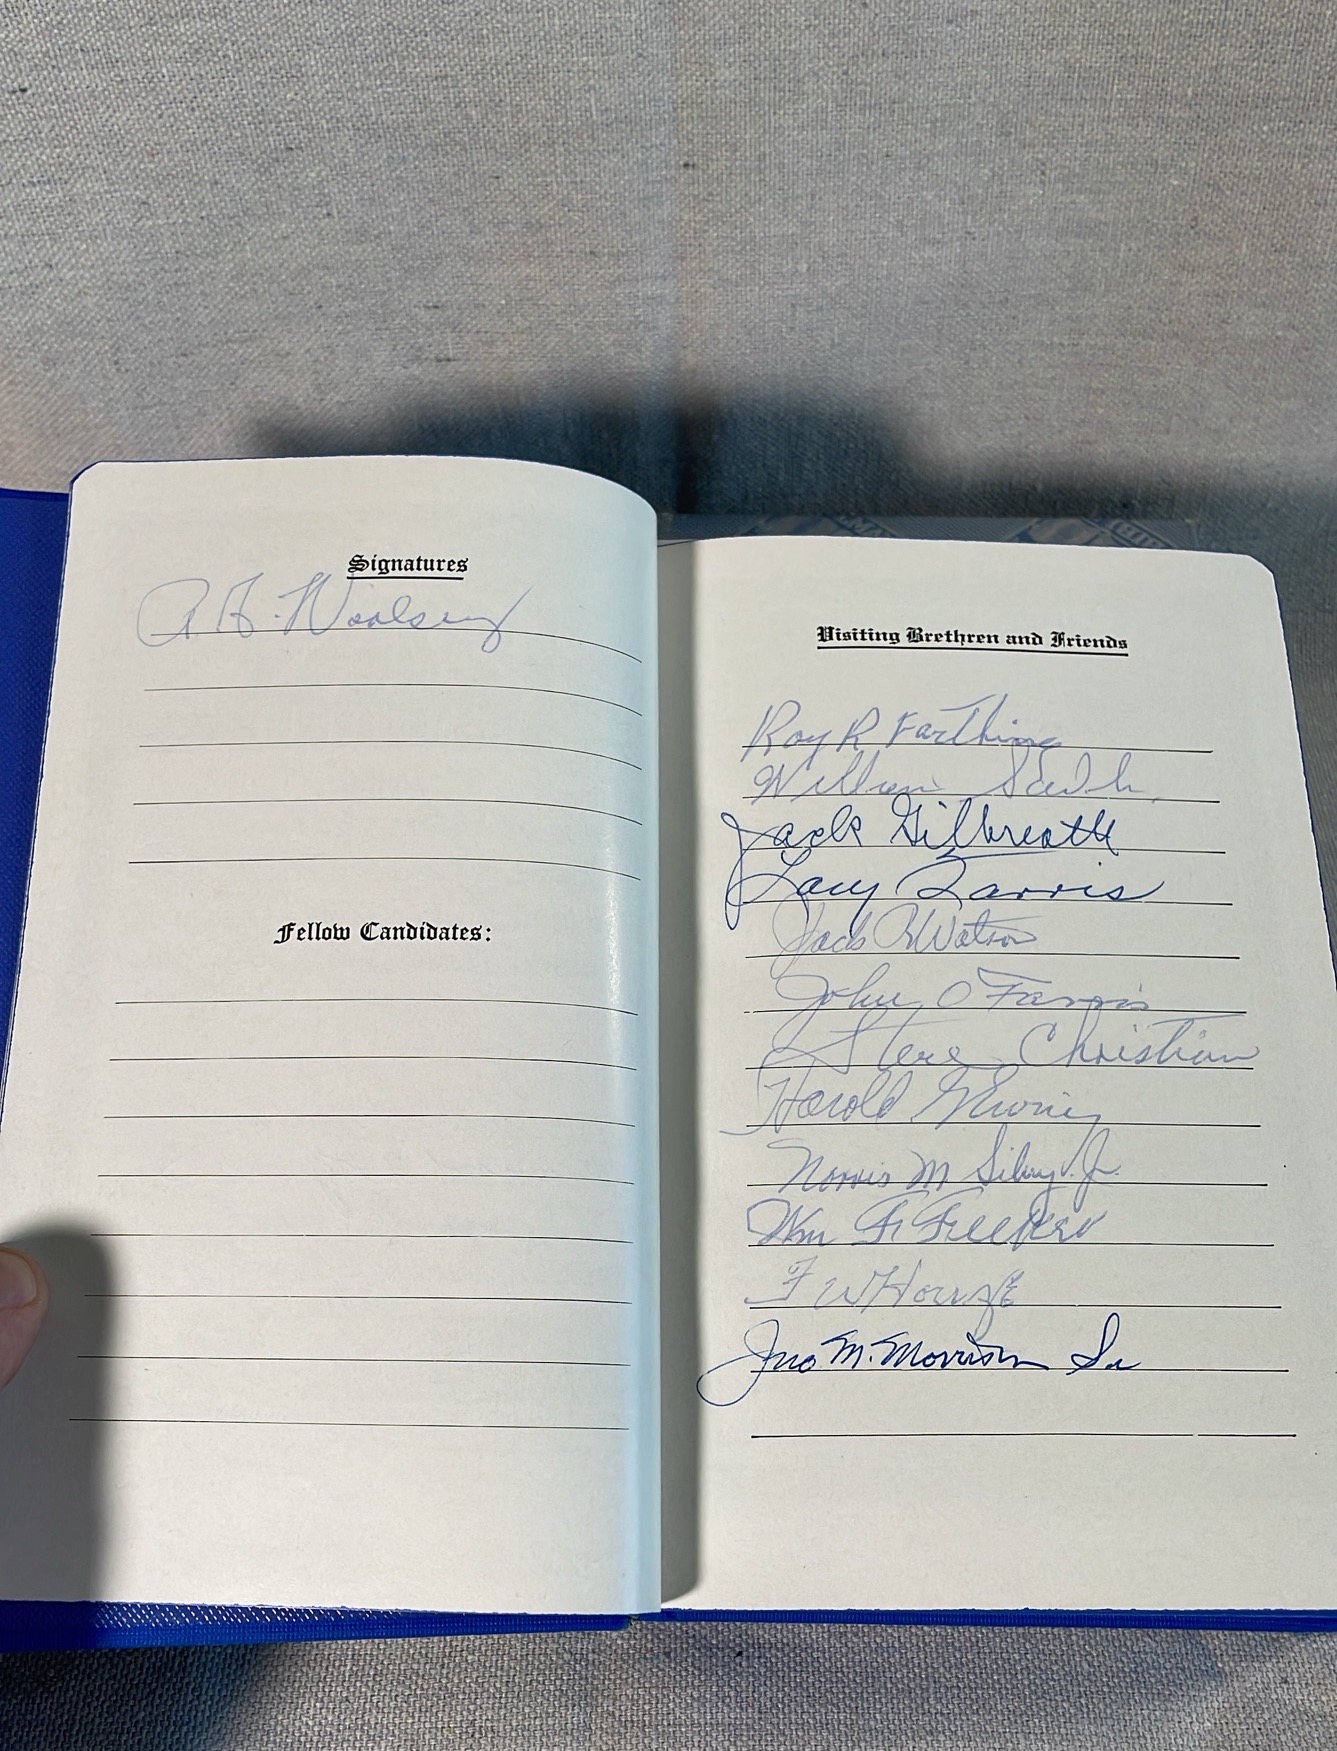 Signatures
A. Woolsey
Fellow Candidates:
Visiting Brethren and Friends
Roy R Farthing
William Smith
Jack Gilbreath
Lacy Farris
Jack R Watson
John O Farris
Steve Christian
Harold
Norris M Sibley Jr.
Wm F.
F W House
Jno M. Morrison Sr